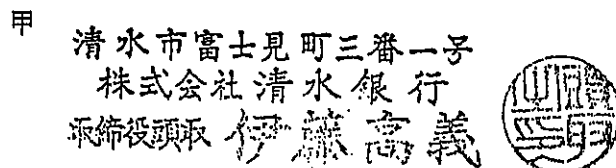 甲
清水市富士見町三番一号
株式会社清水銀行
取締役頭取 伊藤高義